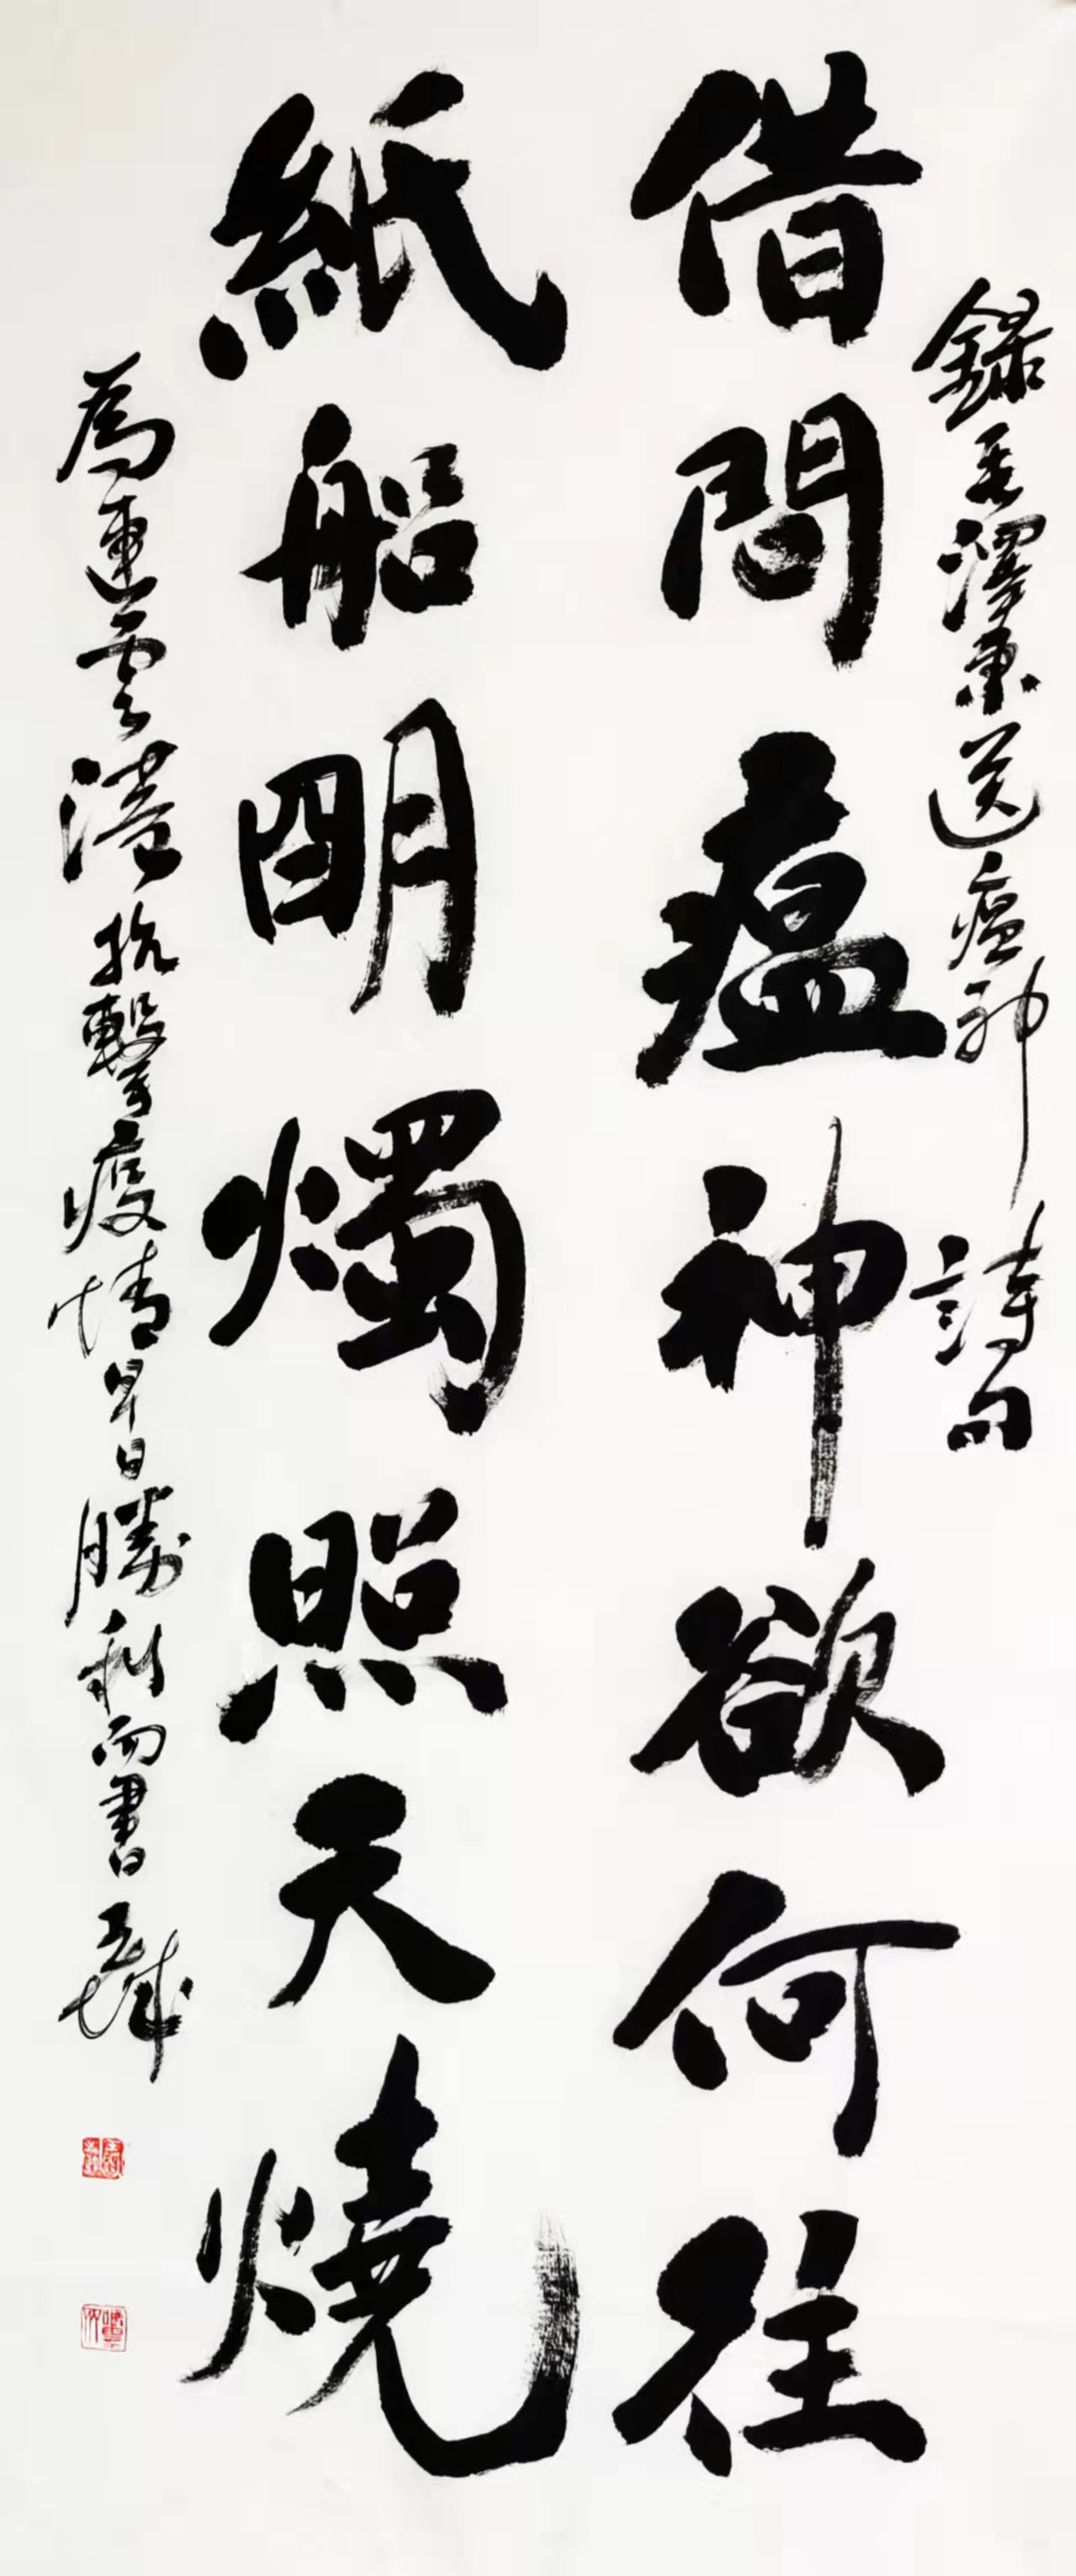 錄毛澤東送瘟神詩句
借問瘟神欲何往
紙船明燭照天燒
為連雲港抗擊疫情早日勝利而書